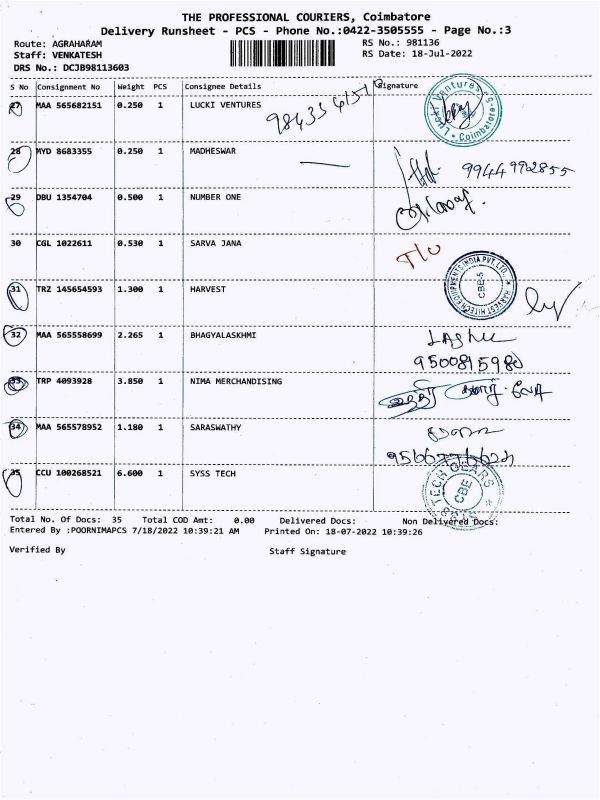 THE PROFESSIONAL COURIERS, Coimbatore
Delivery Runsheet - PCS - Phone No.:0422-3505555 - Page No.:3
Route: AGRAHARAM
RS No.: 981136
Staff: VENKATESH
RS Date: 18-Jul-2022
DRS No.: DCJB98113603
S No Consignment No Weight PCS Consignee Details Signature
27 MAA 565682151 0.250 1 LUCKI VENTURES
Lucki Ventures Coimbatore-5
28 MYD 8683355 0.250 1 MADHESWAR 9944992855
29 DBU 1354704 0.500 1 NUMBER ONE
30 CGL 1022611 0.530 1 SARVA JANA T/O
31 TRZ 145654593 1.300 1 HARVEST
HARVEST HITECH EQUIPMENTS INDIA PVT. LTD. CBE-5
32 MAA 565558699 2.265 1 BHAGYALASKHMI
9500895980
33 TRP 4093928 3.850 1 NIMA MERCHANDISING
34 MAA 565578952 1.180 1 SARASWATHY
35 CCU 100268521 6.600 1 SYSS TECH
TECH GEARS CBE
Total No. Of Docs: 35 Total COD Amt: 0.00 Delivered Docs: Non Delivered Docs:
Entered By :POORNIMAPCS 7/18/2022 10:39:21 AM Printed On: 18-07-2022 10:39:26
Verified By Staff Signature